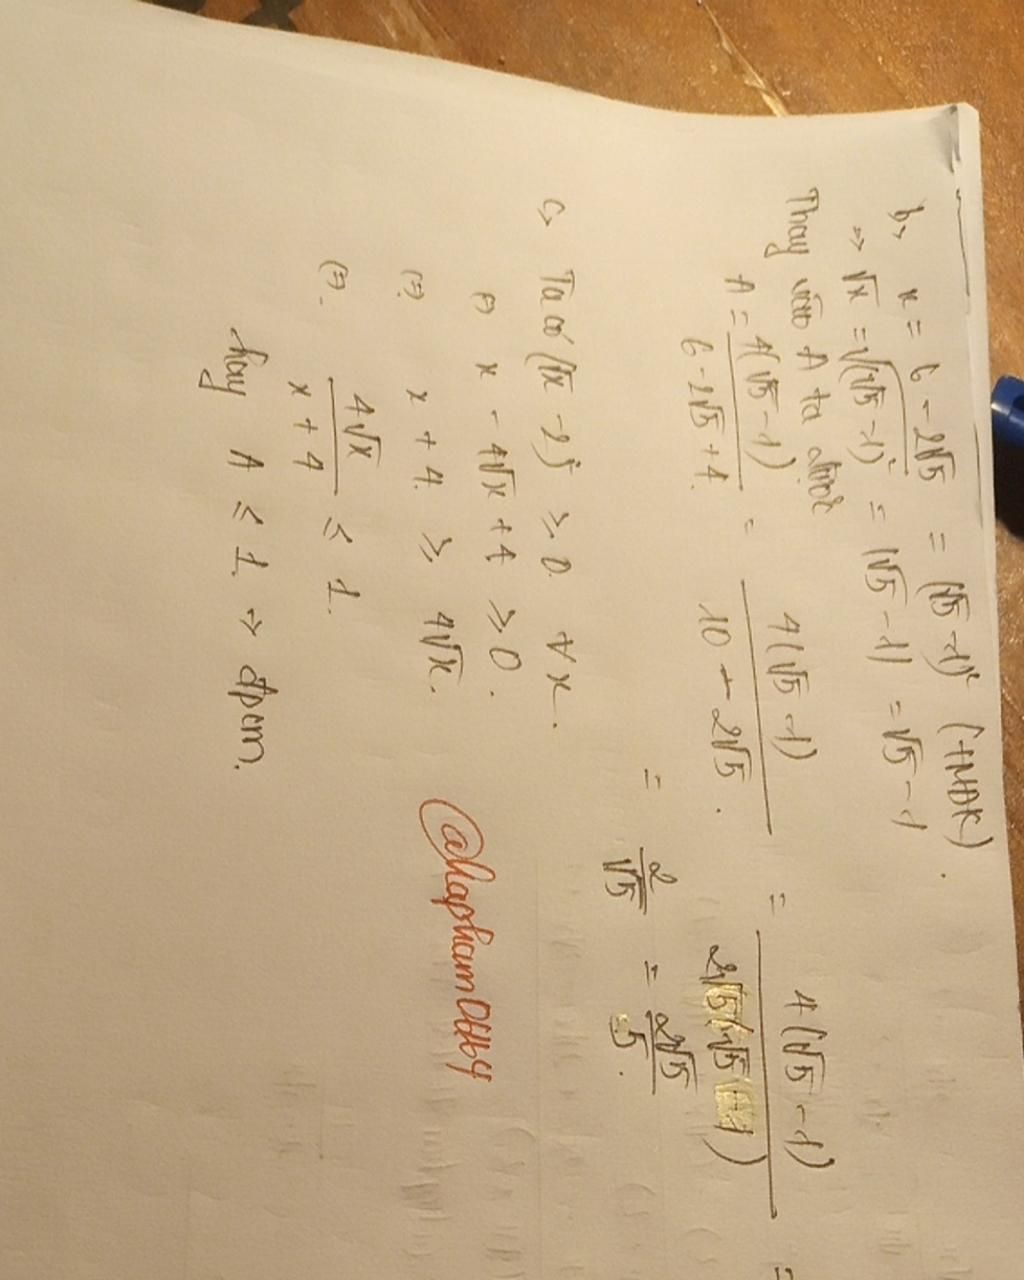 b, x = 6 - 2√5 = (√5 - 1)² (TMĐK).
=> √x = √(√5 - 1)² = |√5 - 1| = √5 - 1
Thay vào A ta được
A = 4(√5 - 1) / 6 - 2√5 + 4 = 4(√5 - 1) / 10 - 2√5 = 4(√5 - 1) / 2√5(√5 - 1) =
= 2/√5 = 2√5/5.
c, Ta có (√x - 2)² ≥ 0 ∀x.
(=) x - 4√x + 4 ≥ 0.
(=) x + 4 ≥ 4√x.
(=) 4√x / x + 4 ≤ 1.
hay A ≤ 1 => đpcm.